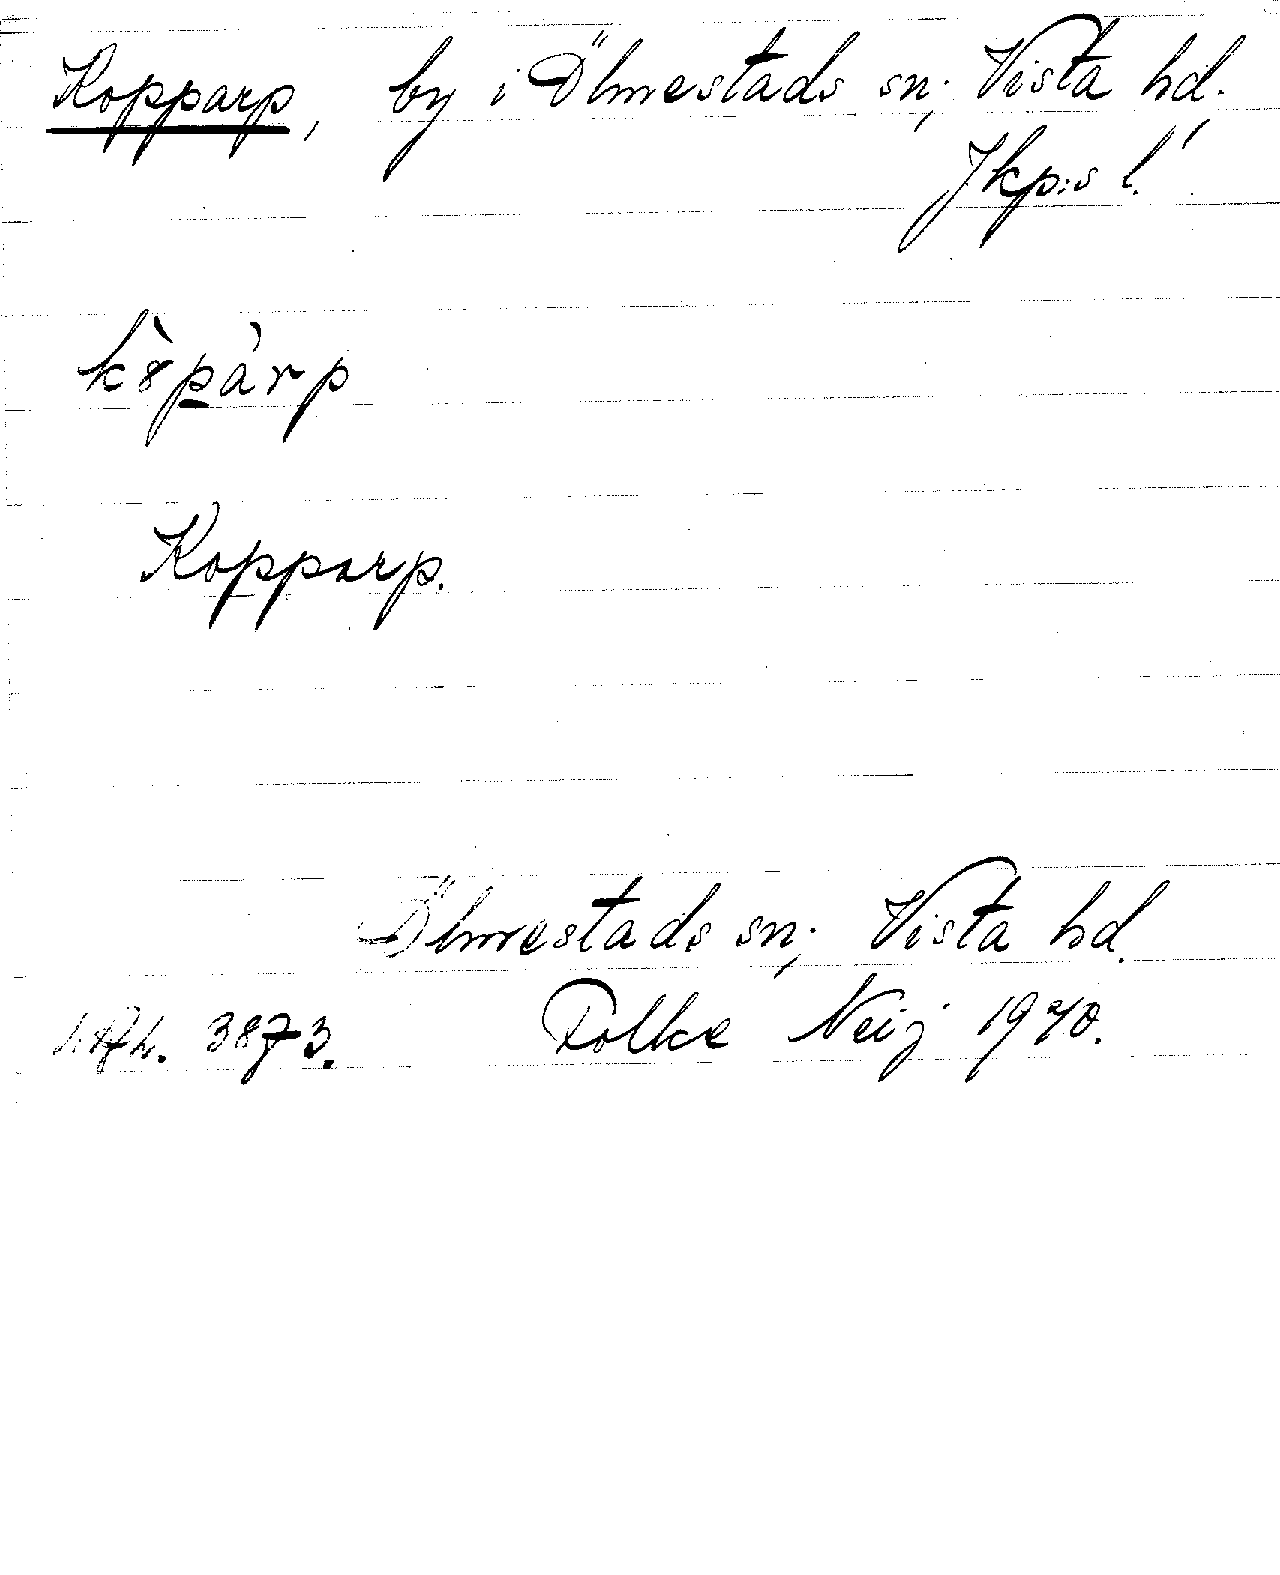 Kopparp, by i Ölmestads sn; Vista hd.
Jkp:s l.
kòpàrp
Kopparp.
Ölmestads sn; Vista hd.
3873. Folke Neij 1940.